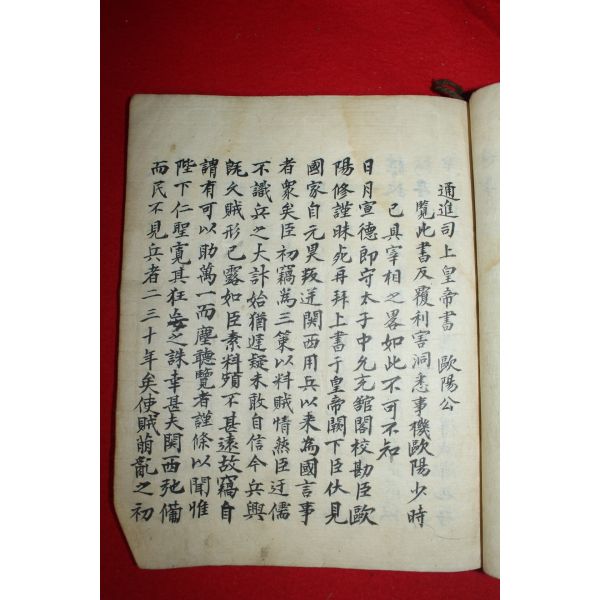 通進司上皇帝書 歐陽公
覽此書反覆利害洞悉事機歐陽少時
已具宰相之畧如此不可不知
日月宣德郎守太子中允充舘閣校勘臣歐
陽修謹昧死再拜上書于皇帝闕下臣伏見
國家自元昊叛逆関西用兵以来為國言事
者衆矣臣初竊為三策以料賊情然臣迂儒
不識兵之大計始猶遅疑未敢自信今兵興
既久賊形已露如臣素料頗不甚遠故竊自
謂有可以助萬一而塵聽覽者謹條以聞惟
陛下仁聖寬其狂妄之誅幸甚夫関西弛備
而民不見兵者二三十年矣使賊萌亂之初